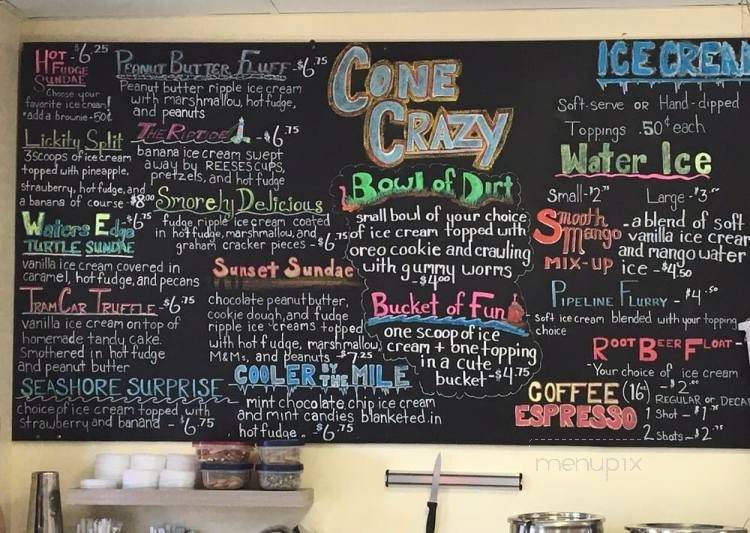 HOT - $6.25
FUDGE
SUNDAE
Choose your
favorite icecream!
*add a brownie-50¢
Lickity Split
3 scoops of ice cream
topped with pineapple,
strawberry, hot fudge, and
a banana of course - $8.00
Waters Edge - $6.75
TURTLE SUNDAE
vanilla ice cream covered in
caramel, hot fudge, and pecans
TRAM CAR TRUFFLE - $6.75
vanilla ice cream on top of
homemade tandy cake.
Smothered in hot fudge
and peanut butter
SEASHORE SURPRISE
choice of ice cream topped with
strawberry and banana - $6.75
PEANUT BUTTER FLUFF - $6.75
Peanut butter ripple ice cream
with marshmallow, hot fudge,
and peanuts
THE RIPTIDE - $6.75
banana ice cream swept
away by REESES CUPS,
pretzels, and hot fudge
Smorely Delicious
fudge ripple ice cream coated
in hot fudge, marshmallow, and
graham cracker pieces - $6.75
Sunset Sundae
chocolate peanut butter,
cookie dough, and fudge
ripple ice creams topped
with hot fudge, marshmallow,
M&Ms, and peanuts - $7.25
COOLER BY THE MILE
mint chocolate chip ice cream
and mint candies blanketed in
hot fudge - $6.75
CONE
CRAZY
Bowl of Dirt
small bowl of your choice
of ice cream topped with
oreo cookie and crawling
with gummy worms
- $4.00
Bucket of Fun
one scoop of ice
cream + one topping
in a cute
bucket - $4.75
ICE CREAM
Soft-serve OR Hand-dipped
Toppings .50¢ each
Water Ice
Small - $2
Large - $3
Smooth
Mango
MIX-UP
- a blend of soft
vanilla ice cream
and mango water
ice - $4.50
PIPELINE FLURRY - $4.50
Soft ice cream blended with your topping
choice
ROOT BEER FLOAT -
Your choice of ice cream
COFFEE (16) - $2.00
REGULAR OR DECA
ESPRESSO
1 Shot - $1.75
2 Shots - $2.75
menupix